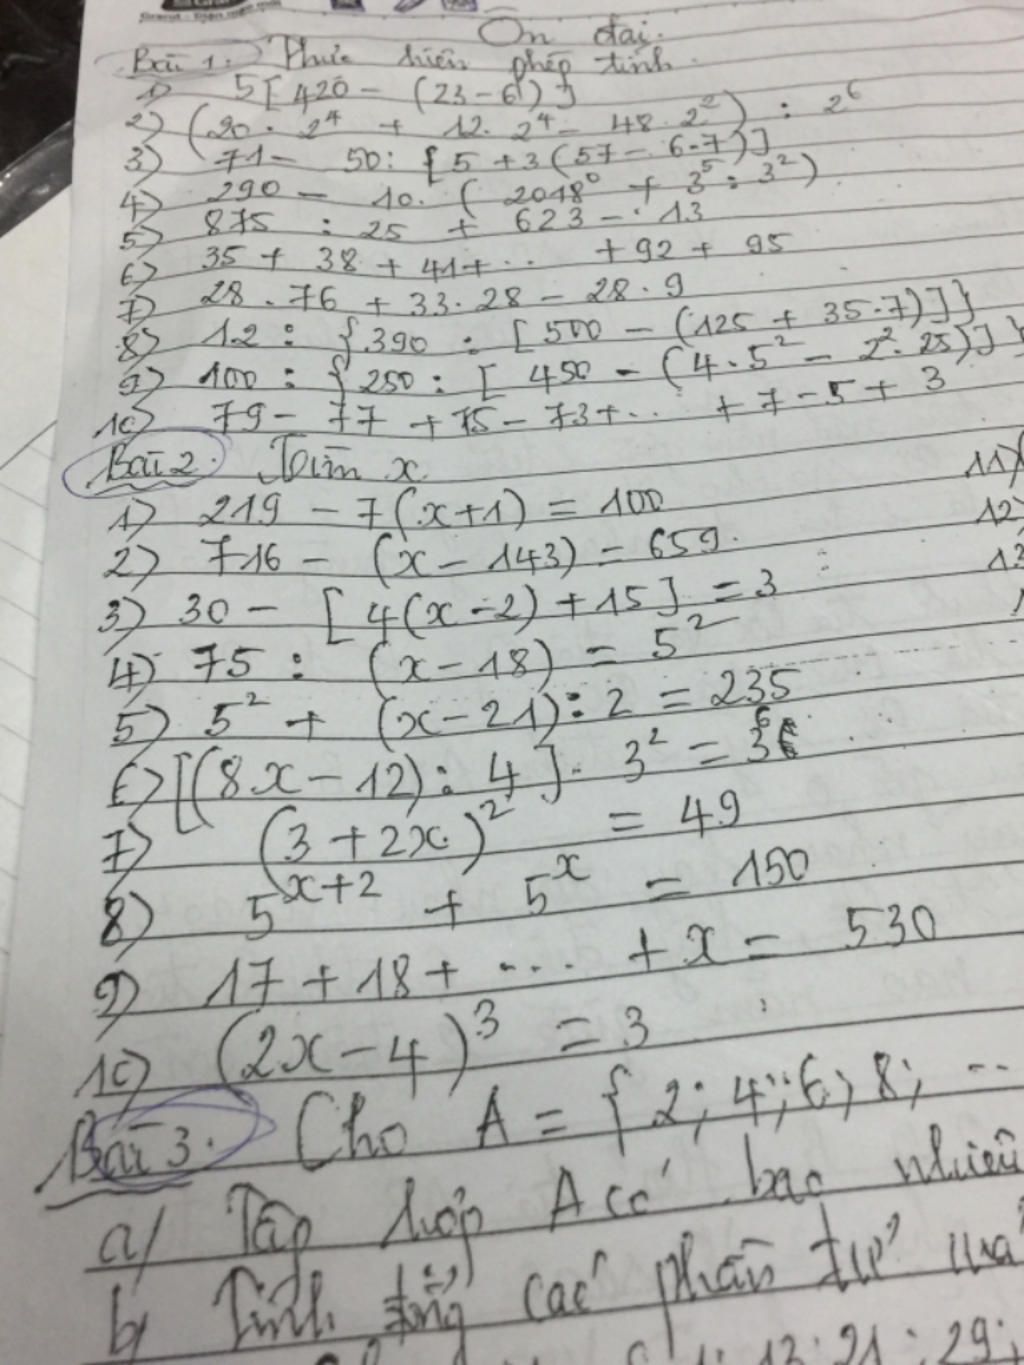 Ôn đại.
Bài 1. Thực hiện phép tính.
1) 5[420 - (23-6)]
2) (20 . 2⁴ + 12. 2⁴ - 48. 2²) : 2⁶
3) 71 - 50: [5 + 3(57 - 6.7)]
4) 290 - 10. ( 2018⁰ + 3⁵ : 3²)
5) 875 : 25 + 623 - 13
6) 35 + 38 + 41 + ... + 92 + 95
7) 28 . 76 + 33. 28 - 28. 9
8) 12 : {390 : [500 - (125 + 35.7)]}
9) 100 : {250 : [ 450 - (4.5² - 2². 25)]}
10) 79 - 77 + 75 - 73 + ... + 7 - 5 + 3
Bài 2. Tìm x. 11)
1) 219 - 7(x+1) = 100 12)
2) 716 - (x - 143) = 659. 13
3) 30 - [4(x-2) + 15] = 3
4) 75 : (x - 18) = 5²
5) 5² + (x - 21) : 2 = 235
6) [(8x - 12) : 4] . 3² = 3⁶
7) (3 + 2x)² = 49
8) 5ˣ⁺² + 5ˣ = 150
9) 17 + 18 + ... + x = 530
10) (2x - 4)³ = 3
Bài 3. Cho A = {2; 4; 6; 8; ...
a/ Tập hợp A có bao nhiêu
b/ Tính tổng các phần tử
13; 21; 29;